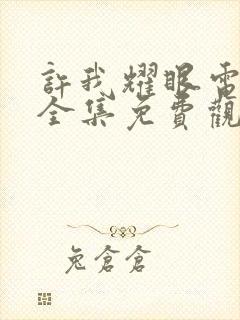 許我耀眼電
全集免費觀
兔倉倉